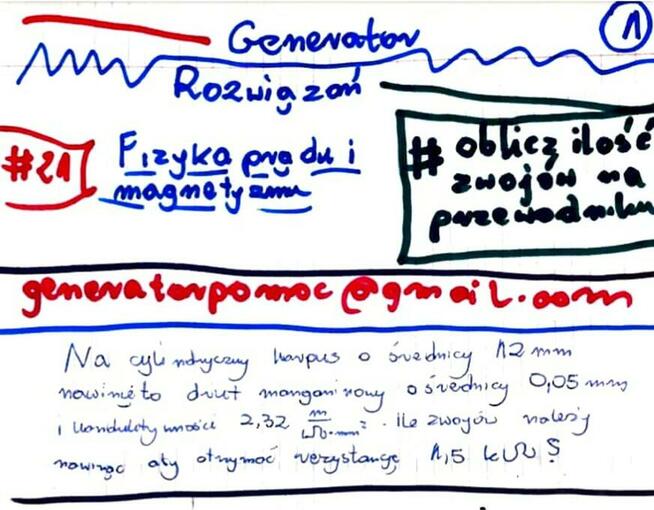 Generator
1
Rozwiązań
#21
Fizyka prądu i
magnetyzmu
# oblicz ilość
zwojów na
przewodniku
generatorpomoc@gmail.com
Na cylindryczny korpus o średnicy 12 mm
nawinięto drut manganinowy o średnicy 0,05 mm
i konduktywności 2,32 m/Ω·mm². ile zwojów należy
nawinąć aby otrzymać rezystancję 1,5 kΩ?